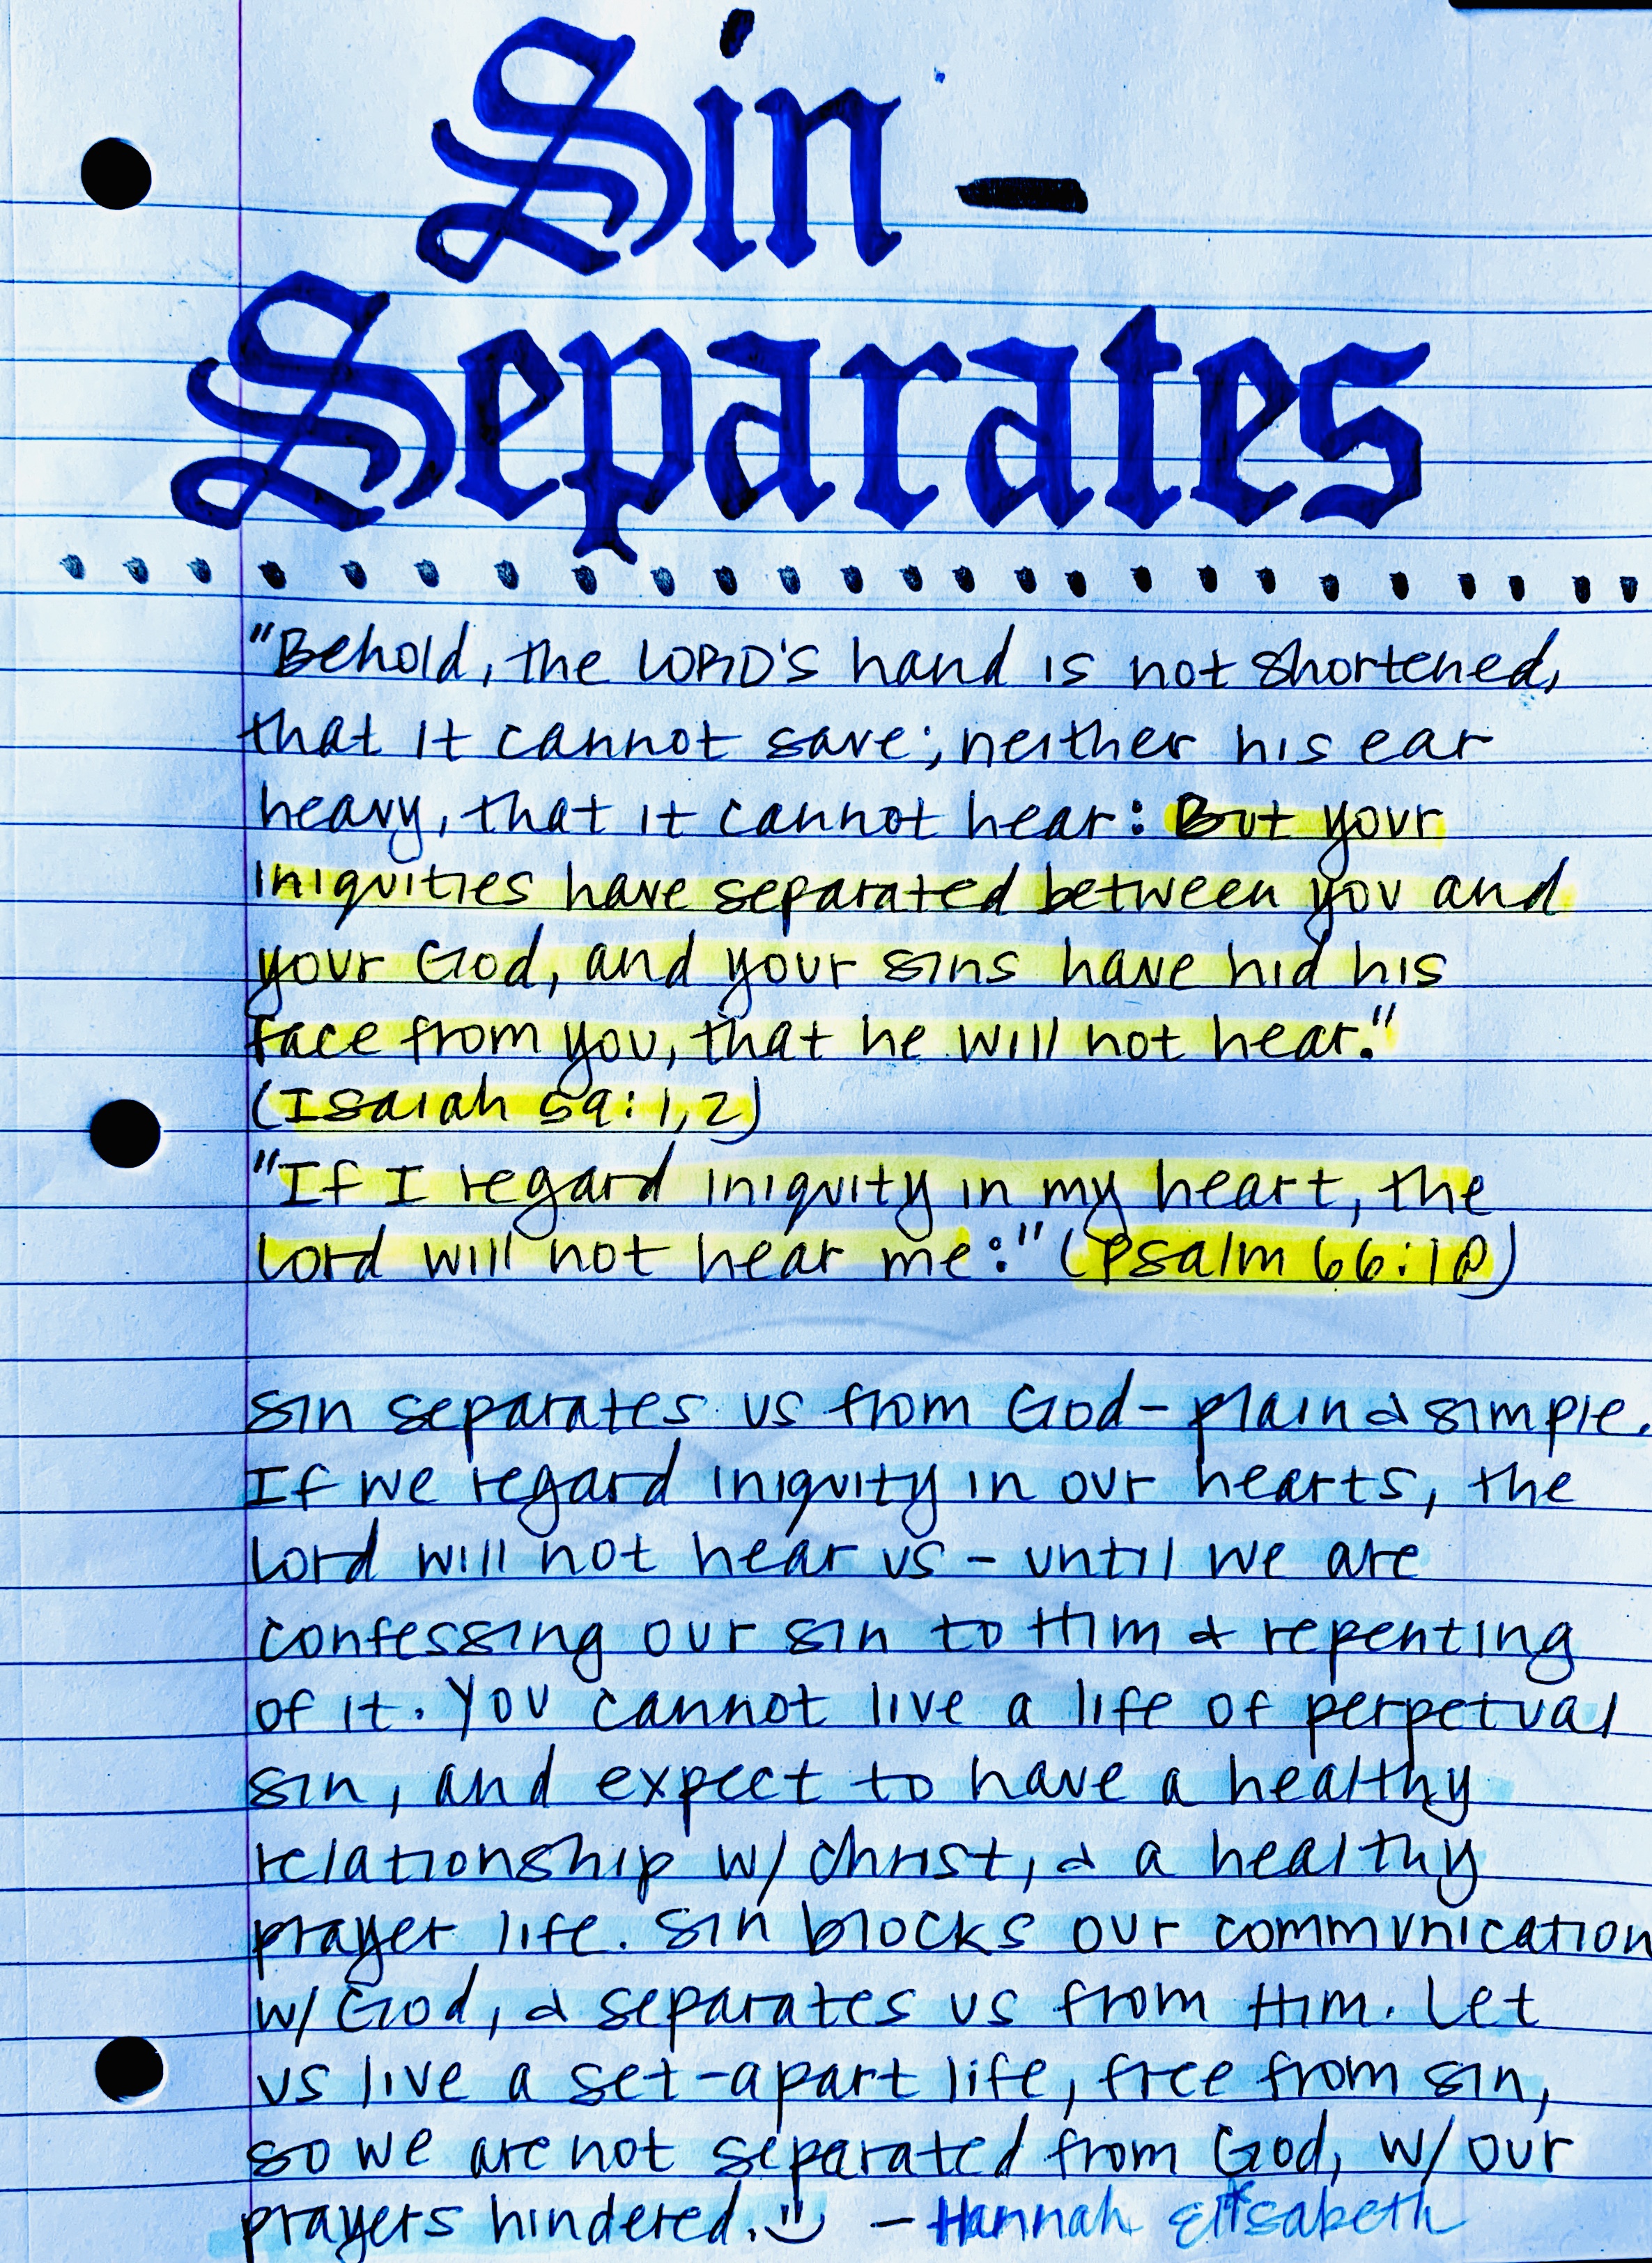 Sin -
Separates
"Behold, the LORD'S hand is not shortened,
that it cannot save; neither his ear
heavy, that it cannot hear: But your
iniquities have separated between you and
your God, and your sins have hid his
face from you, that he will not hear."
(Isaiah 59:1,2)
"If I regard iniquity in my heart, the
Lord will not hear me:" (Psalm 66:18)
Sin separates us from God - plain & simple.
If we regard iniquity in our hearts, the
Lord will not hear us - until we are
confessing our sin to Him & repenting
of it. You cannot live a life of perpetual
sin, and expect to have a healthy
relationship w/ Christ, & a healthy
prayer life. Sin blocks our communication
w/ God, & separates us from Him. Let
us live a set-apart life, free from sin,
so we are not separated from God, w/ our
prayers hindered. - Hannah Elisabeth